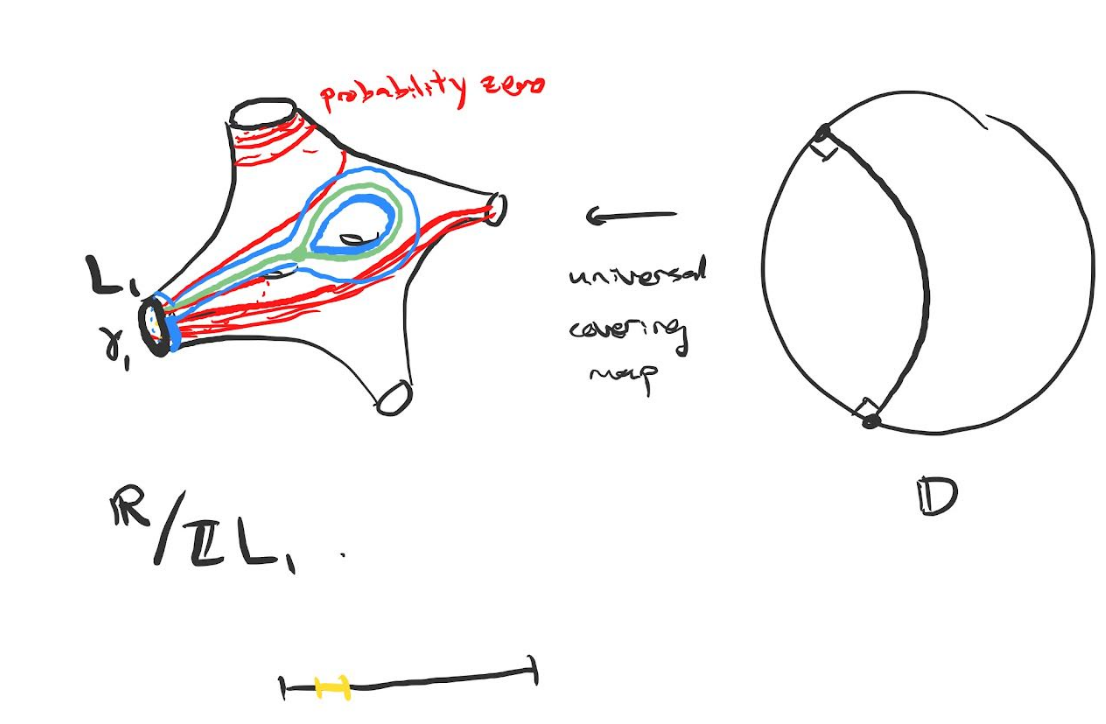 probability zero
L₁
γ₁
universal
covering
map
𝔻
ℝ/ℤL₁.